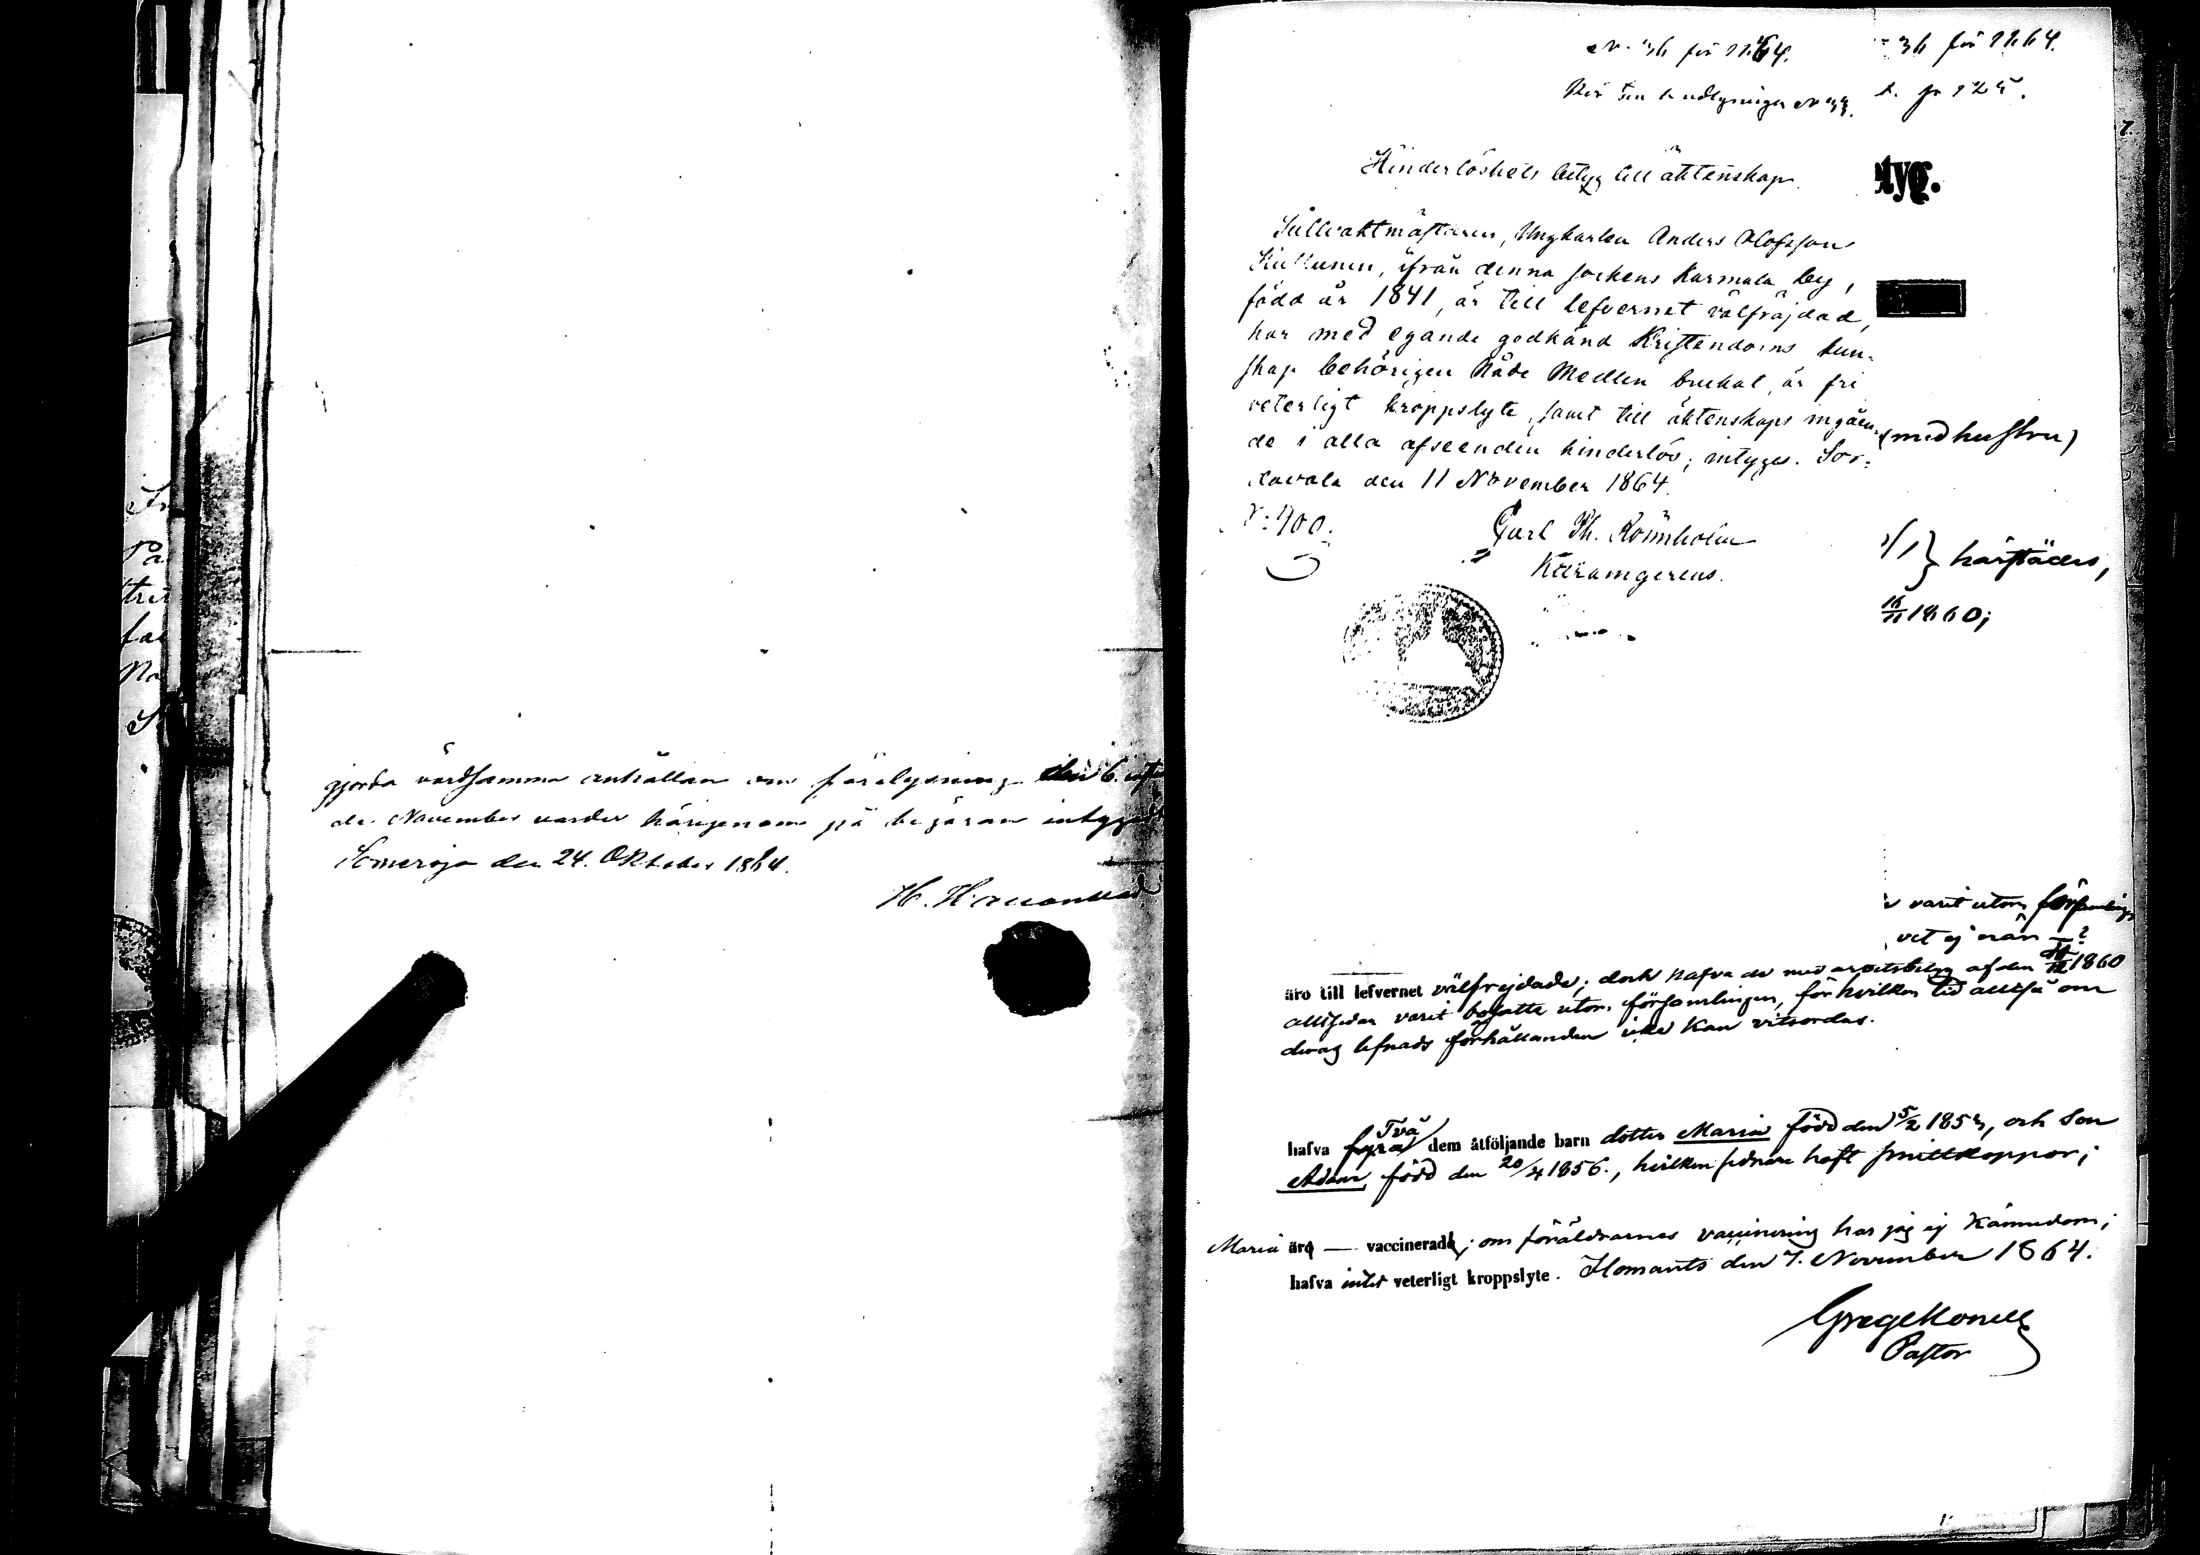 gjorda vördsamma anhållan om förelysning den 6.
de November varder härigenom på begäran intygadt
Somerojo den 24. Oktober 1864.
N. 36 för 1864.
36 för 1864.
Hinderlöshets betyg till äktenskap
tyg.
Tullvaktmästaren, Ungkarlen Anders Olofsson
Kukkunen, ifrån denna sockens Karmala by,
född år 1841, är till lefvernet välfräjdad,
har med egande godkänd Kristendoms kun-
skap behörigen Nåde Medlen brukat, är fri
veterligt kroppslyte, samt till äktenskaps ingåen-
de i alla afseenden hinderlös; intyges. Sor-
davala den 11 November 1864.
(med hustru)
N:400.
Carl Th. Rönnholm
härstädes,
1860;
varit utom församlings
vet ej
äro till lefvernet välfrejdade; dock hafva de med arbetsbetyg af den 1860
alltsedan varit bosatte utom församlingen, för hvilken tid alltså om
deras lefnads förhållanden icke kan vitsordas.
hafva fyra Två dem åtföljande barn dotter Maria född den 5/2 1853, och Son
Adam, född den 20/4 1856., hvilken sednare haft smittkoppor;
Maria äro — vaccinerade; om föräldrarnes vaccinering har jag ej kännedom;
hafva intet veterligt kroppslyte. Ilomants den 7. November 1864.
Pastor